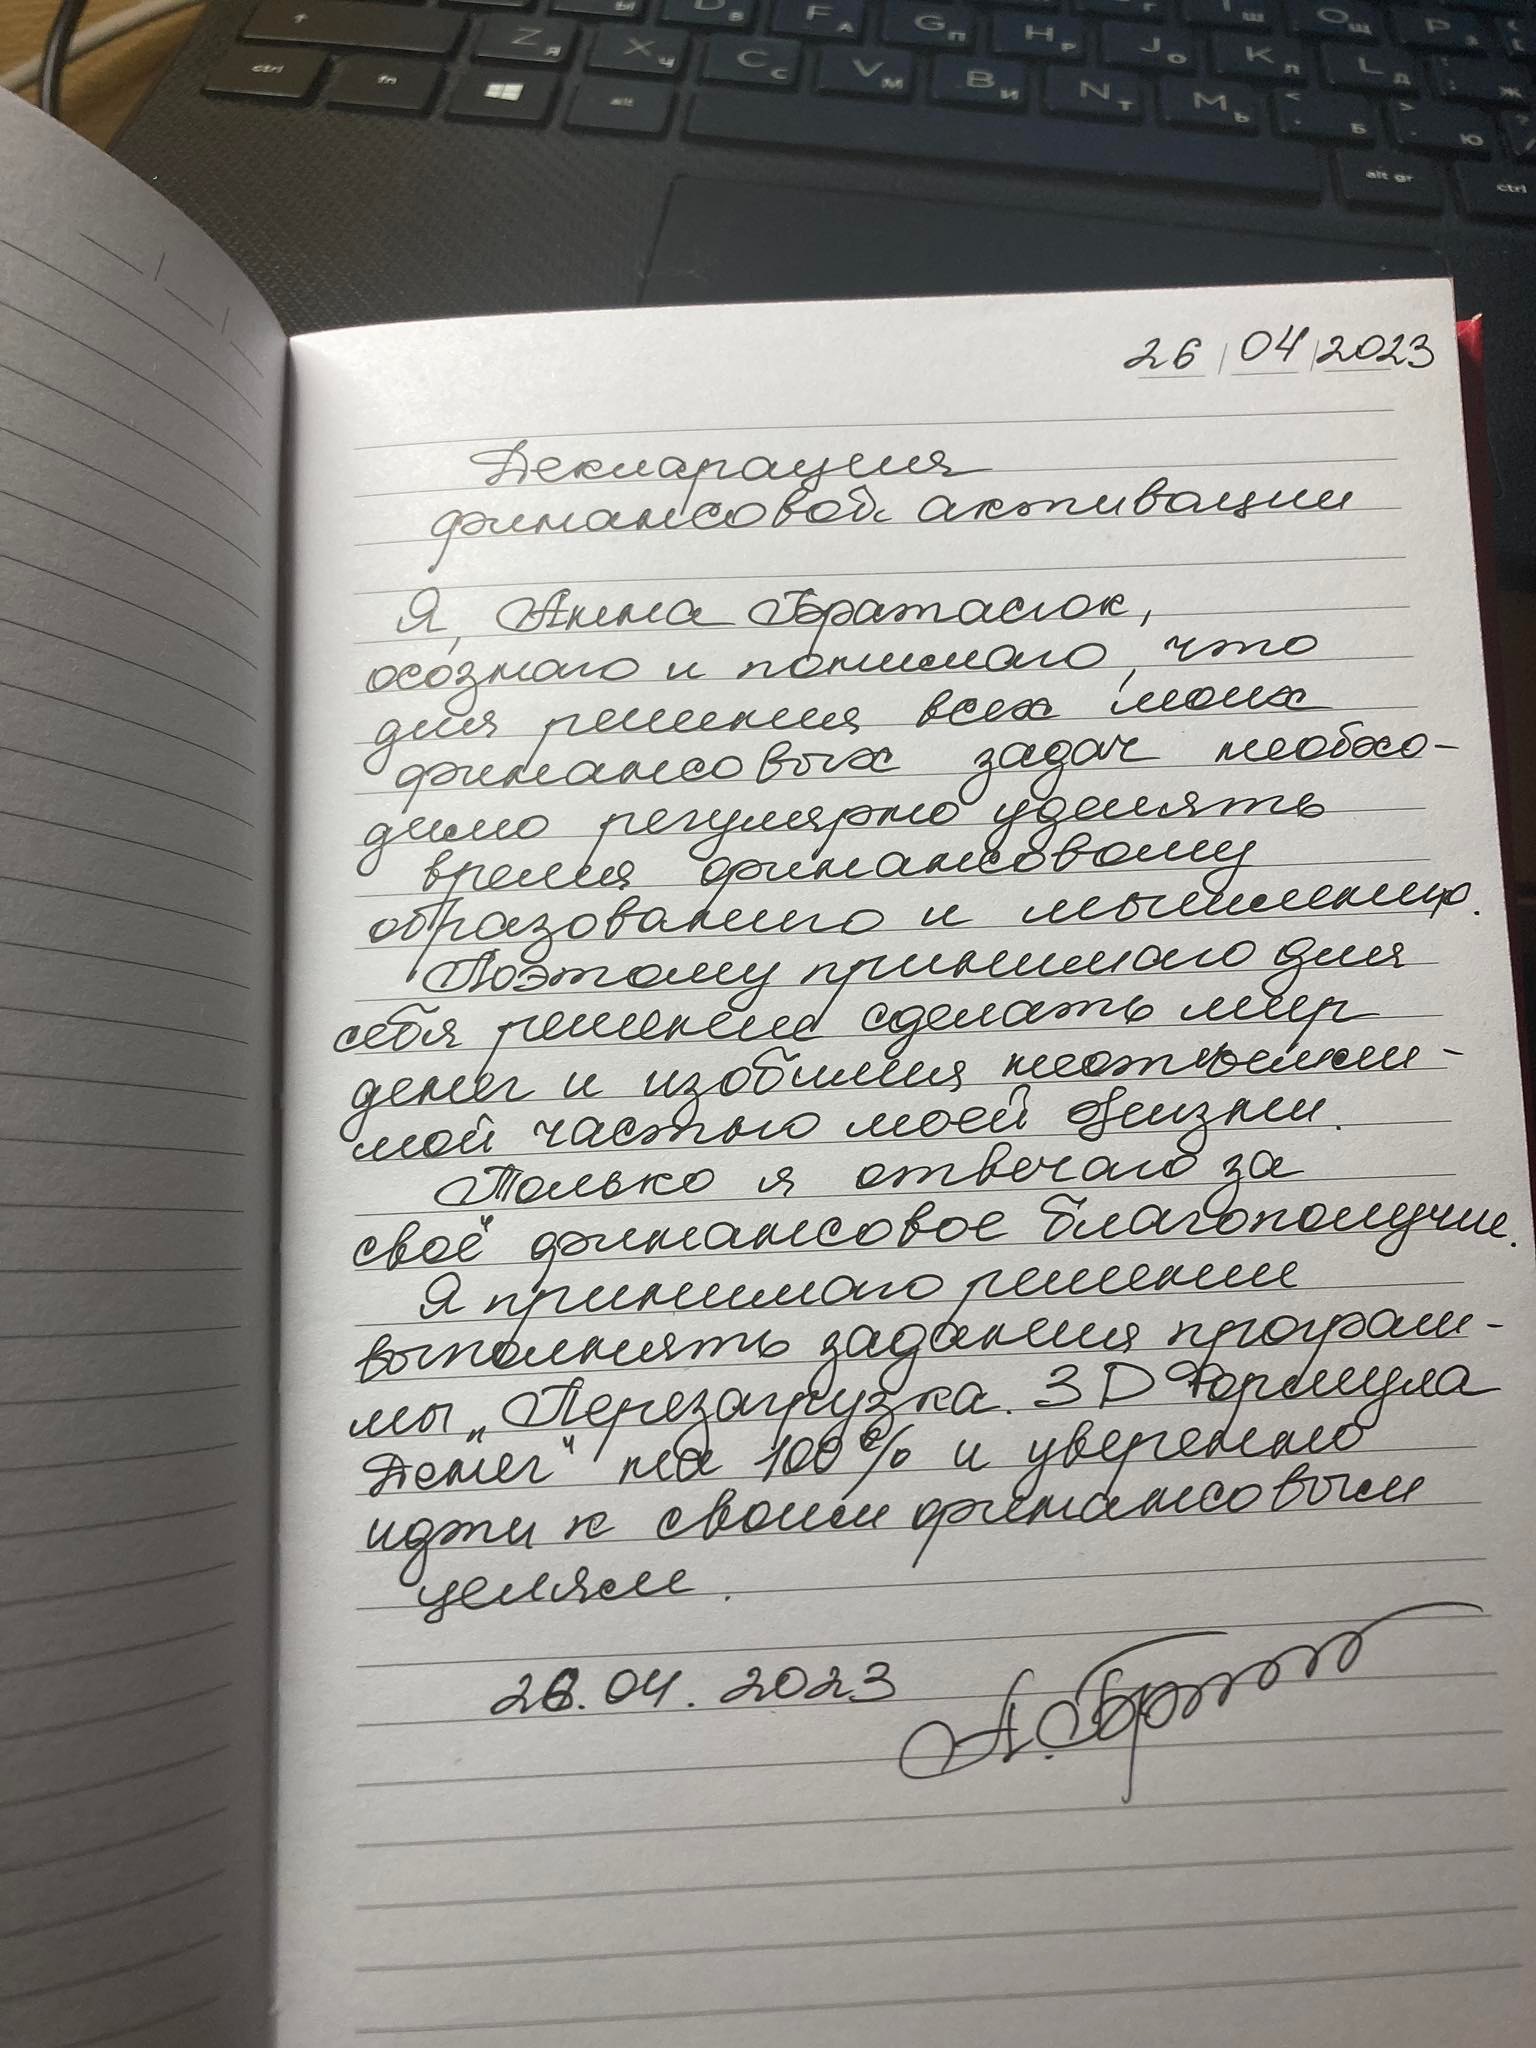 Z Я X Ч C С V М B И N Т M Ь < Б > Ю
D В F А G П H Р J О K Л L Д Ж
ctrl fn alt alt gr ctrl
26 04 2023
Декларация
финансовой активации
Я, Анна Братасюк,
осознаю и понимаю, что
для решения всех моих
финансовых задач необхо-
димо регулярно уделять
время финансовому
образованию и мышлению.
Поэтому принимаю для
себя решение сделать мир
денег и изобилия неотъемле-
мой частью моей жизни.
Только я отвечаю за
своё финансовое благополучие.
Я принимаю решение
выполнять задания програм-
мы „Перезагрузка. 3D Формула
Денег" на 100% и уверенно
идти к своим финансовым
целям.
26.04.2023